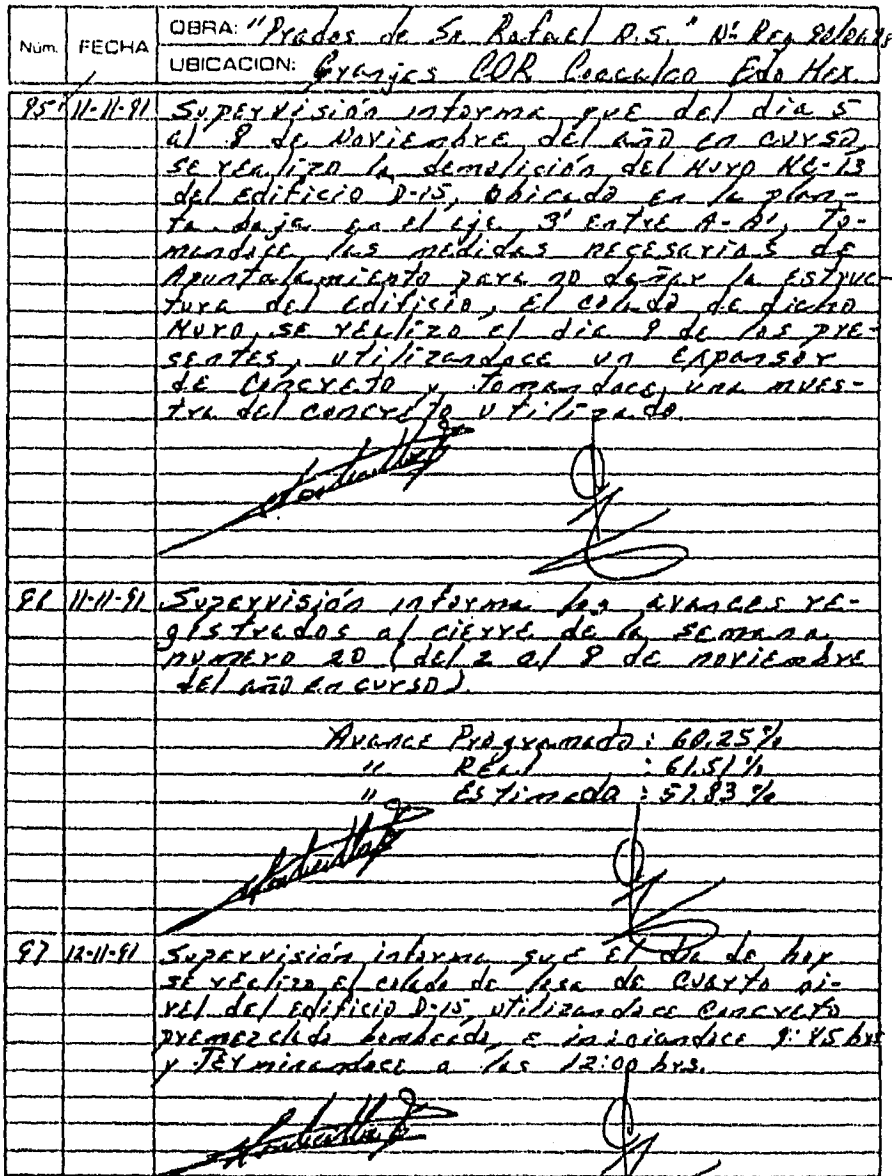 Núm. FECHA OBRA: "Prados de Sn Rafael D.S." Nº Reg
UBICACION: Granjas COR Coacalco Edo Mex.
95 11-11-91 Supervisión informa que del dia 5
al 8 de Noviembre del año en curso,
se realizo la demolición del Muro
del Edificio D-15, Obicado en la plan-
ta baja en el eje 3' entre A-B', To-
mandoce las medidas necesarias de
Apuntalamiento para no dañar la Estruc-
tura del Edificio, El colado de dicho
Muro, se realizo el dia 8 de los pre-
sentes, utilizandoce un Expansor
de Concreto y Tomandoce, una mues-
tra del concreto utilizado.
96 11-11-91 Supervisión informa los avances re-
gistrados al cierre de la semana
numero 20 (del 2 al 8 de noviembre
del año en curso).
Avance Programado : 60.25%
" Real : 61.51%
" Estimado : 57.83%
97 12-11-91 Supervisión informa que el dia de hoy
se realizo el colado de losa de Cuarto ni-
vel del Edificio D-15, utilizandoce Concreto
premezclado bombeado, e iniciandoce 9:45 hrs
y Terminandoce a las 12:00 hrs.